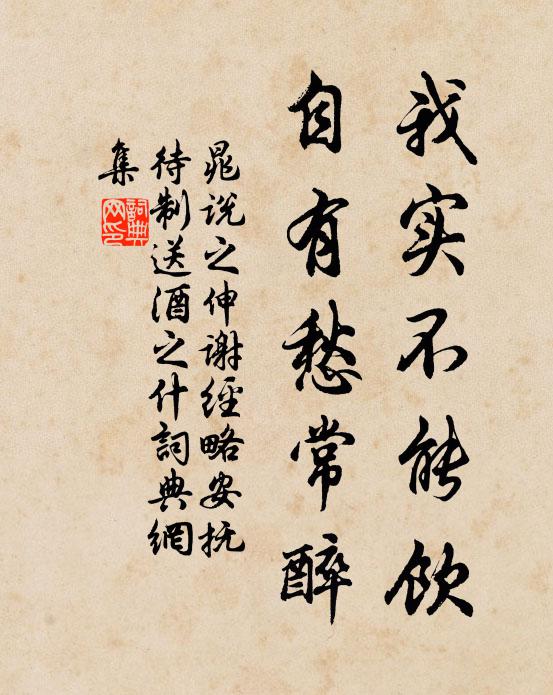 我实不能饮
自有愁常醉
晁说之伸谢經略安抚
待制送酒之什詞典網
集
詞典
网印